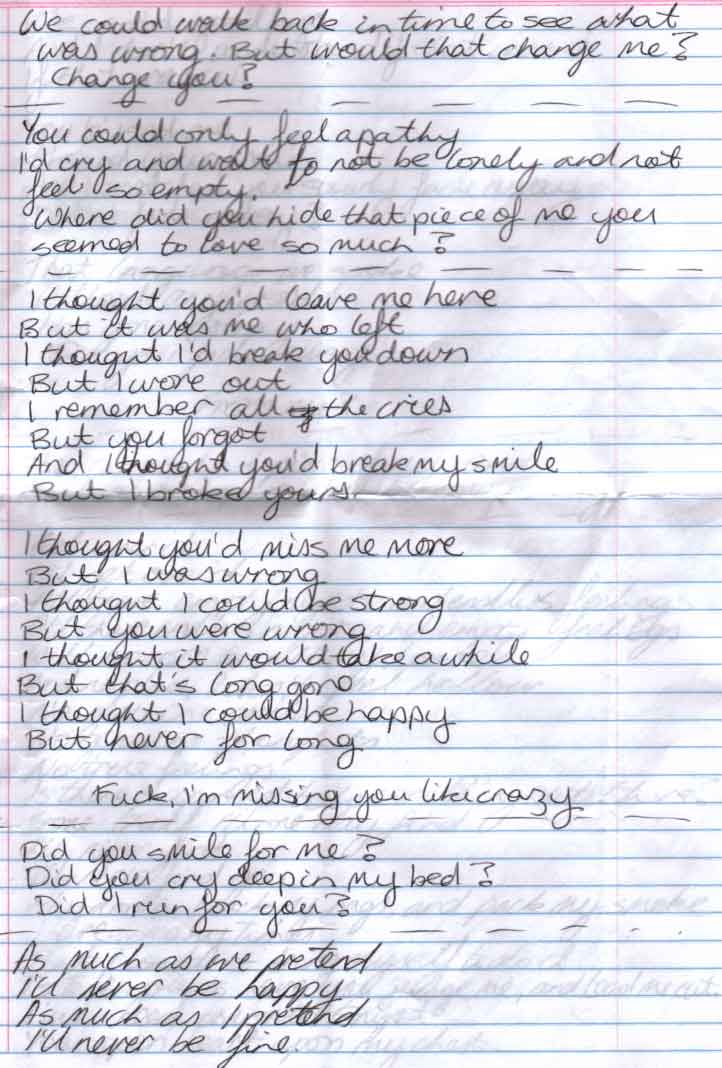 We could walk back in time to see what
was wrong. But would that change me?
Change you?
You could only feel apathy
I'd cry and wait to not be lonely and not
feel so empty.
Where did you hide that piece of me you
seemed to love so much?
I thought you'd leave me here
But it was me who left
I thought I'd break you down
But I wore out
I remember all the cries
But you forgot
And I thought you'd break my smile
But I broke yours
I thought you'd miss me more
But I was wrong
I thought I could be strong
But you were wrong
I thought it would take awhile
But that's long gone
I thought I could be happy
But never for long
Fuck, i'm missing you like crazy
Did you smile for me?
Did you cry deep in my bed?
Did I run for you?
As much as we pretend
I'll never be happy
As much as I pretend
I'll never be fine.